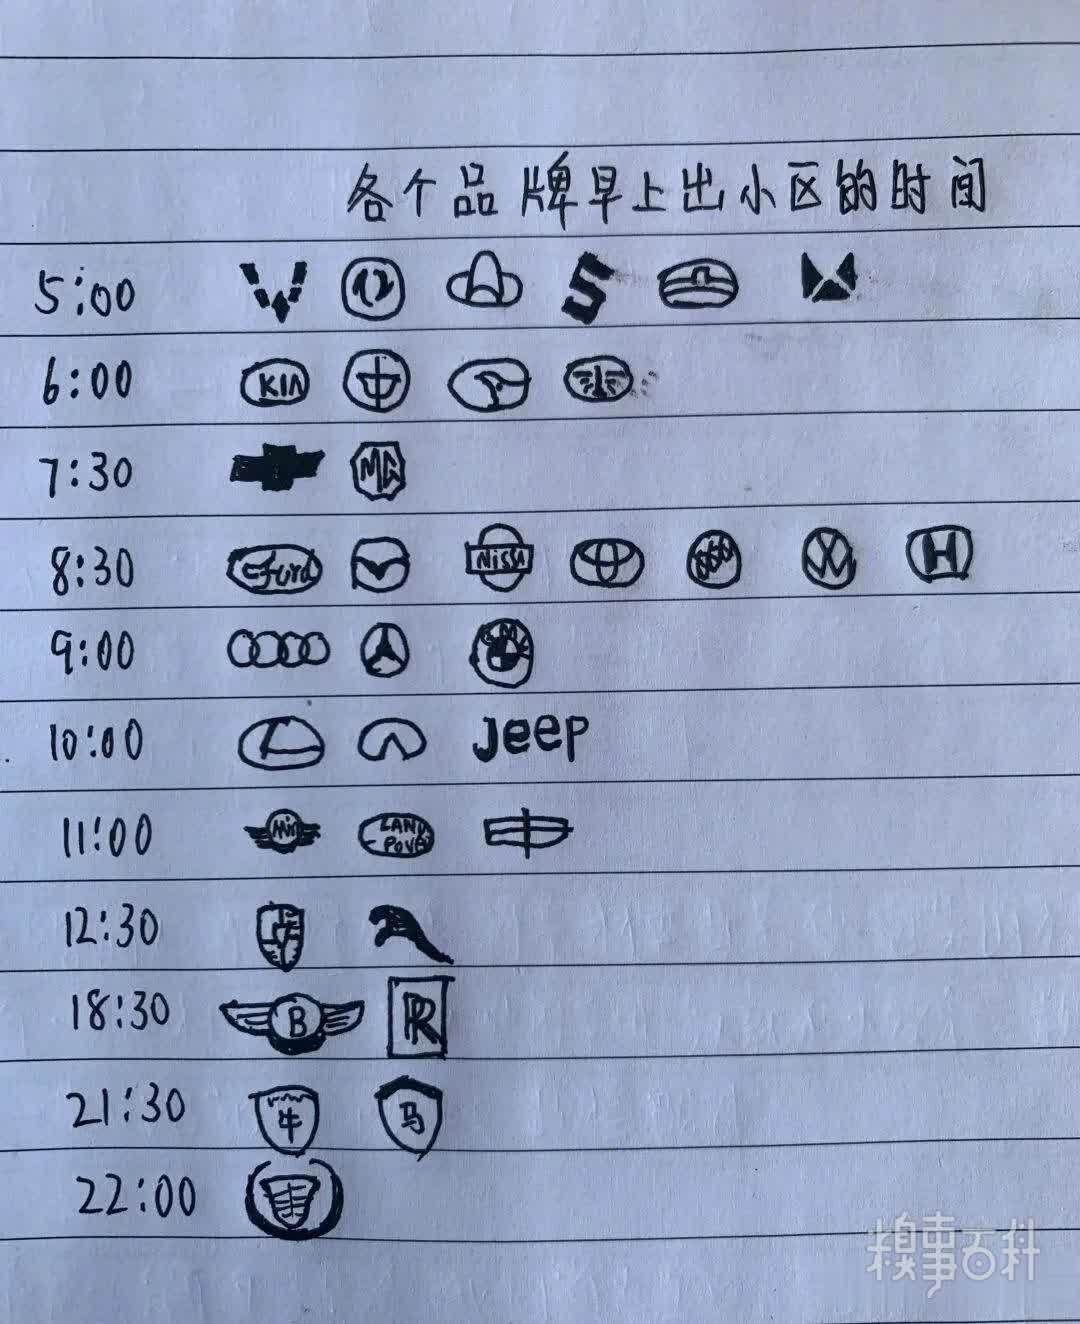 各个品牌早上出小区的时间
5:00
6:00 KIA
7:30 MG
8:30 Ford NISSA H
9:00 BMW
10:00 Jeep
11:00 LAND ROVER
12:30
18:30 B RR
21:30 牛 马
22:00
糗事百科